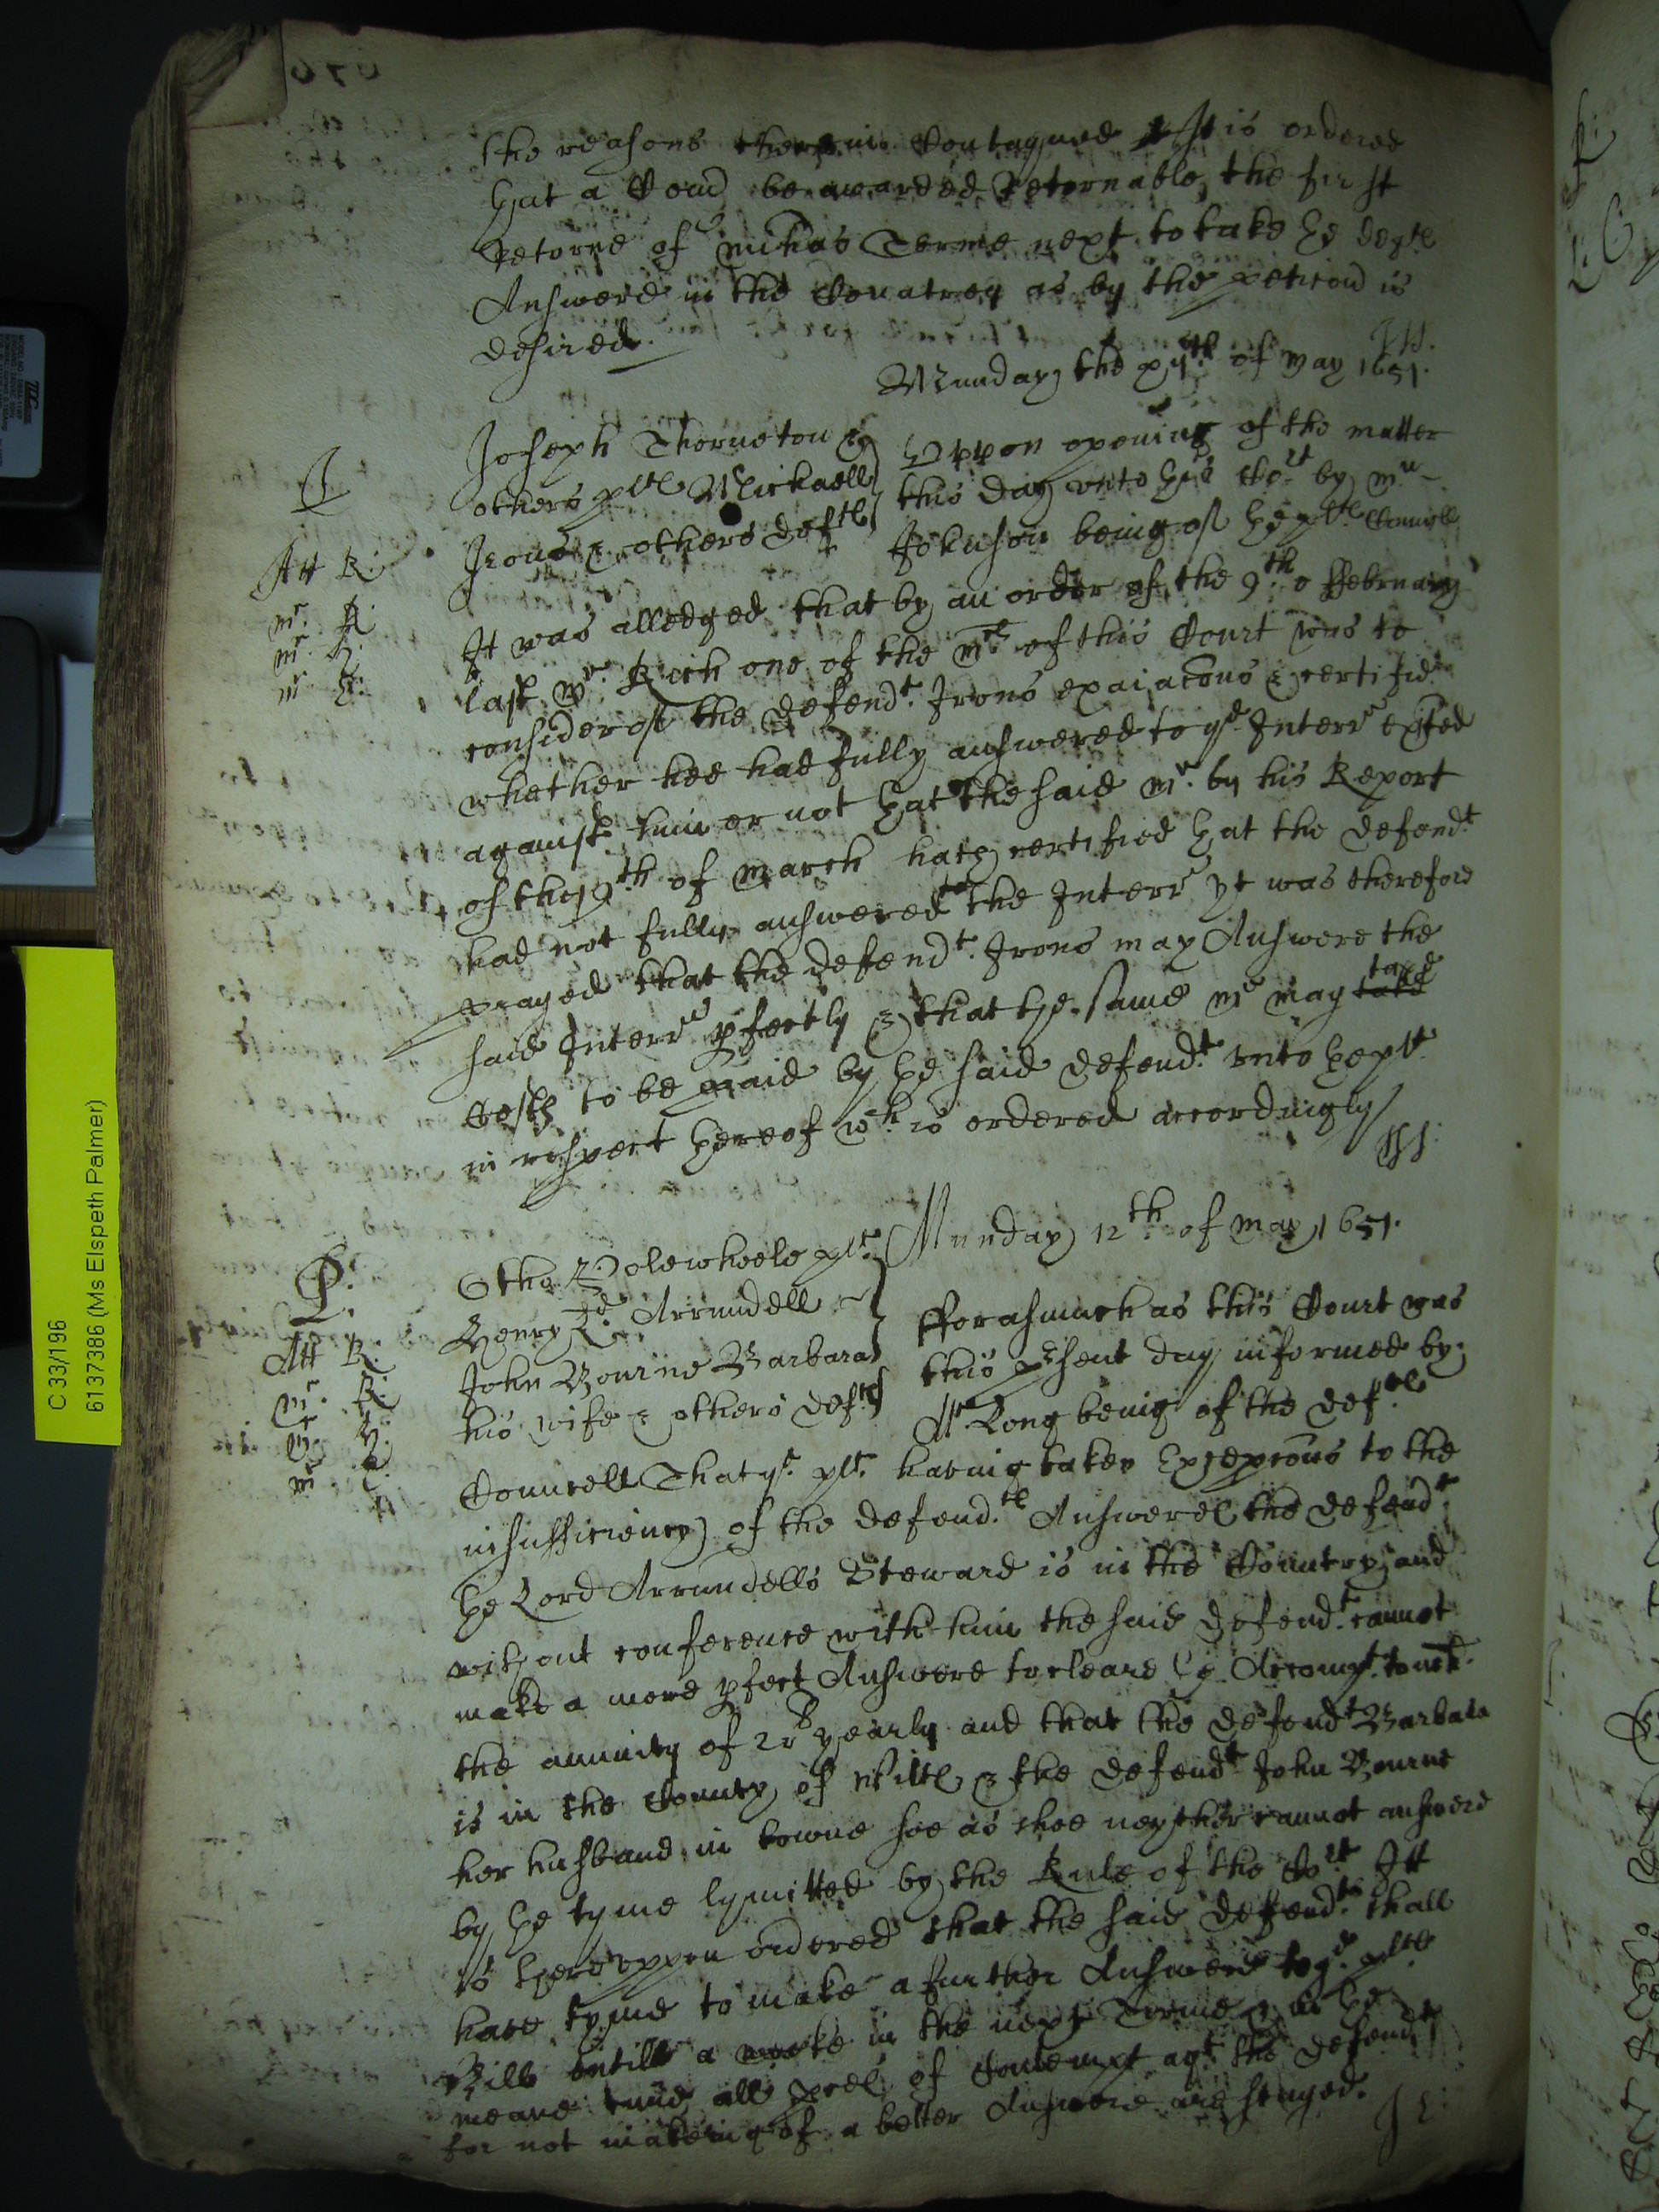 the reasons therein Contayned It is ordered
that a Com̄ be awarded Retornable the first
Retorne of Michas Terme next to take the defts
Answere in the Countrey as by the peticon is
desired.
Munday the xijth of May 1651.
Joseph Thorneton &
others plts Mickaell
Irons & others defts
Uppon opening of the matter
this day unto this Cort by Mr
Johnson being of the plts Councell
It was alledged that by an order of the 9th o ffebruary
last Mr. Rich one of the Mrs of this Court was to
consider of the defendt. Irons exaiacons & certifie
whether hee had fully answered to ye Interrs exīted
against him or not that the said Mr. by his Report
of the 19th of March hath certified that the defendt
had not fully answered to the Interrs yt was therefore
prayed that the defendt. Irons may Answere the
said Interrs pfectly & that the same Mr may take taxe
Costs to be paid by the said defendt unto the plt
in respect thereof wch is ordered accordingly
J
Att R:
mr. R
mr. H:
mr H:
Munday 12th of May 1651.
Otho Polewheele plt
Henry Ld. Arrundell
John Bourne Barbara
his wife & others defts
fforasmuch as this Court was
this psent day informed by
Mr. Long being of the defts
Councell That ye plt. having taken Excepcons to the
insufficiency of the defend.ts Answeres the defendt
the Lord Arrundells Steward is in the Country and
without conference with him the said defendt. cannot
make a more pfect Answere to cleare the Accompt. touch.
the annuity of yearly and that the defendt Barbara
is in the County of Wilts & the defendt John Bourne
her husband in towne soe as shee neyther cannot answere
by the tyme lymitted by the Rule of the Cort Itt
is thereuppon ordered that the said Defendts shall
have tyme to make a further Answere to ye plts
Bill untill a weeke in the next Terme & in the
meane time all proces of Contempt agt the defendts
for not making of a better Answere are stayed.
P:
Att R:
mr. R:
mr. H:
mr
C 33/196
6137386 (Ms Elspeth Palmer)